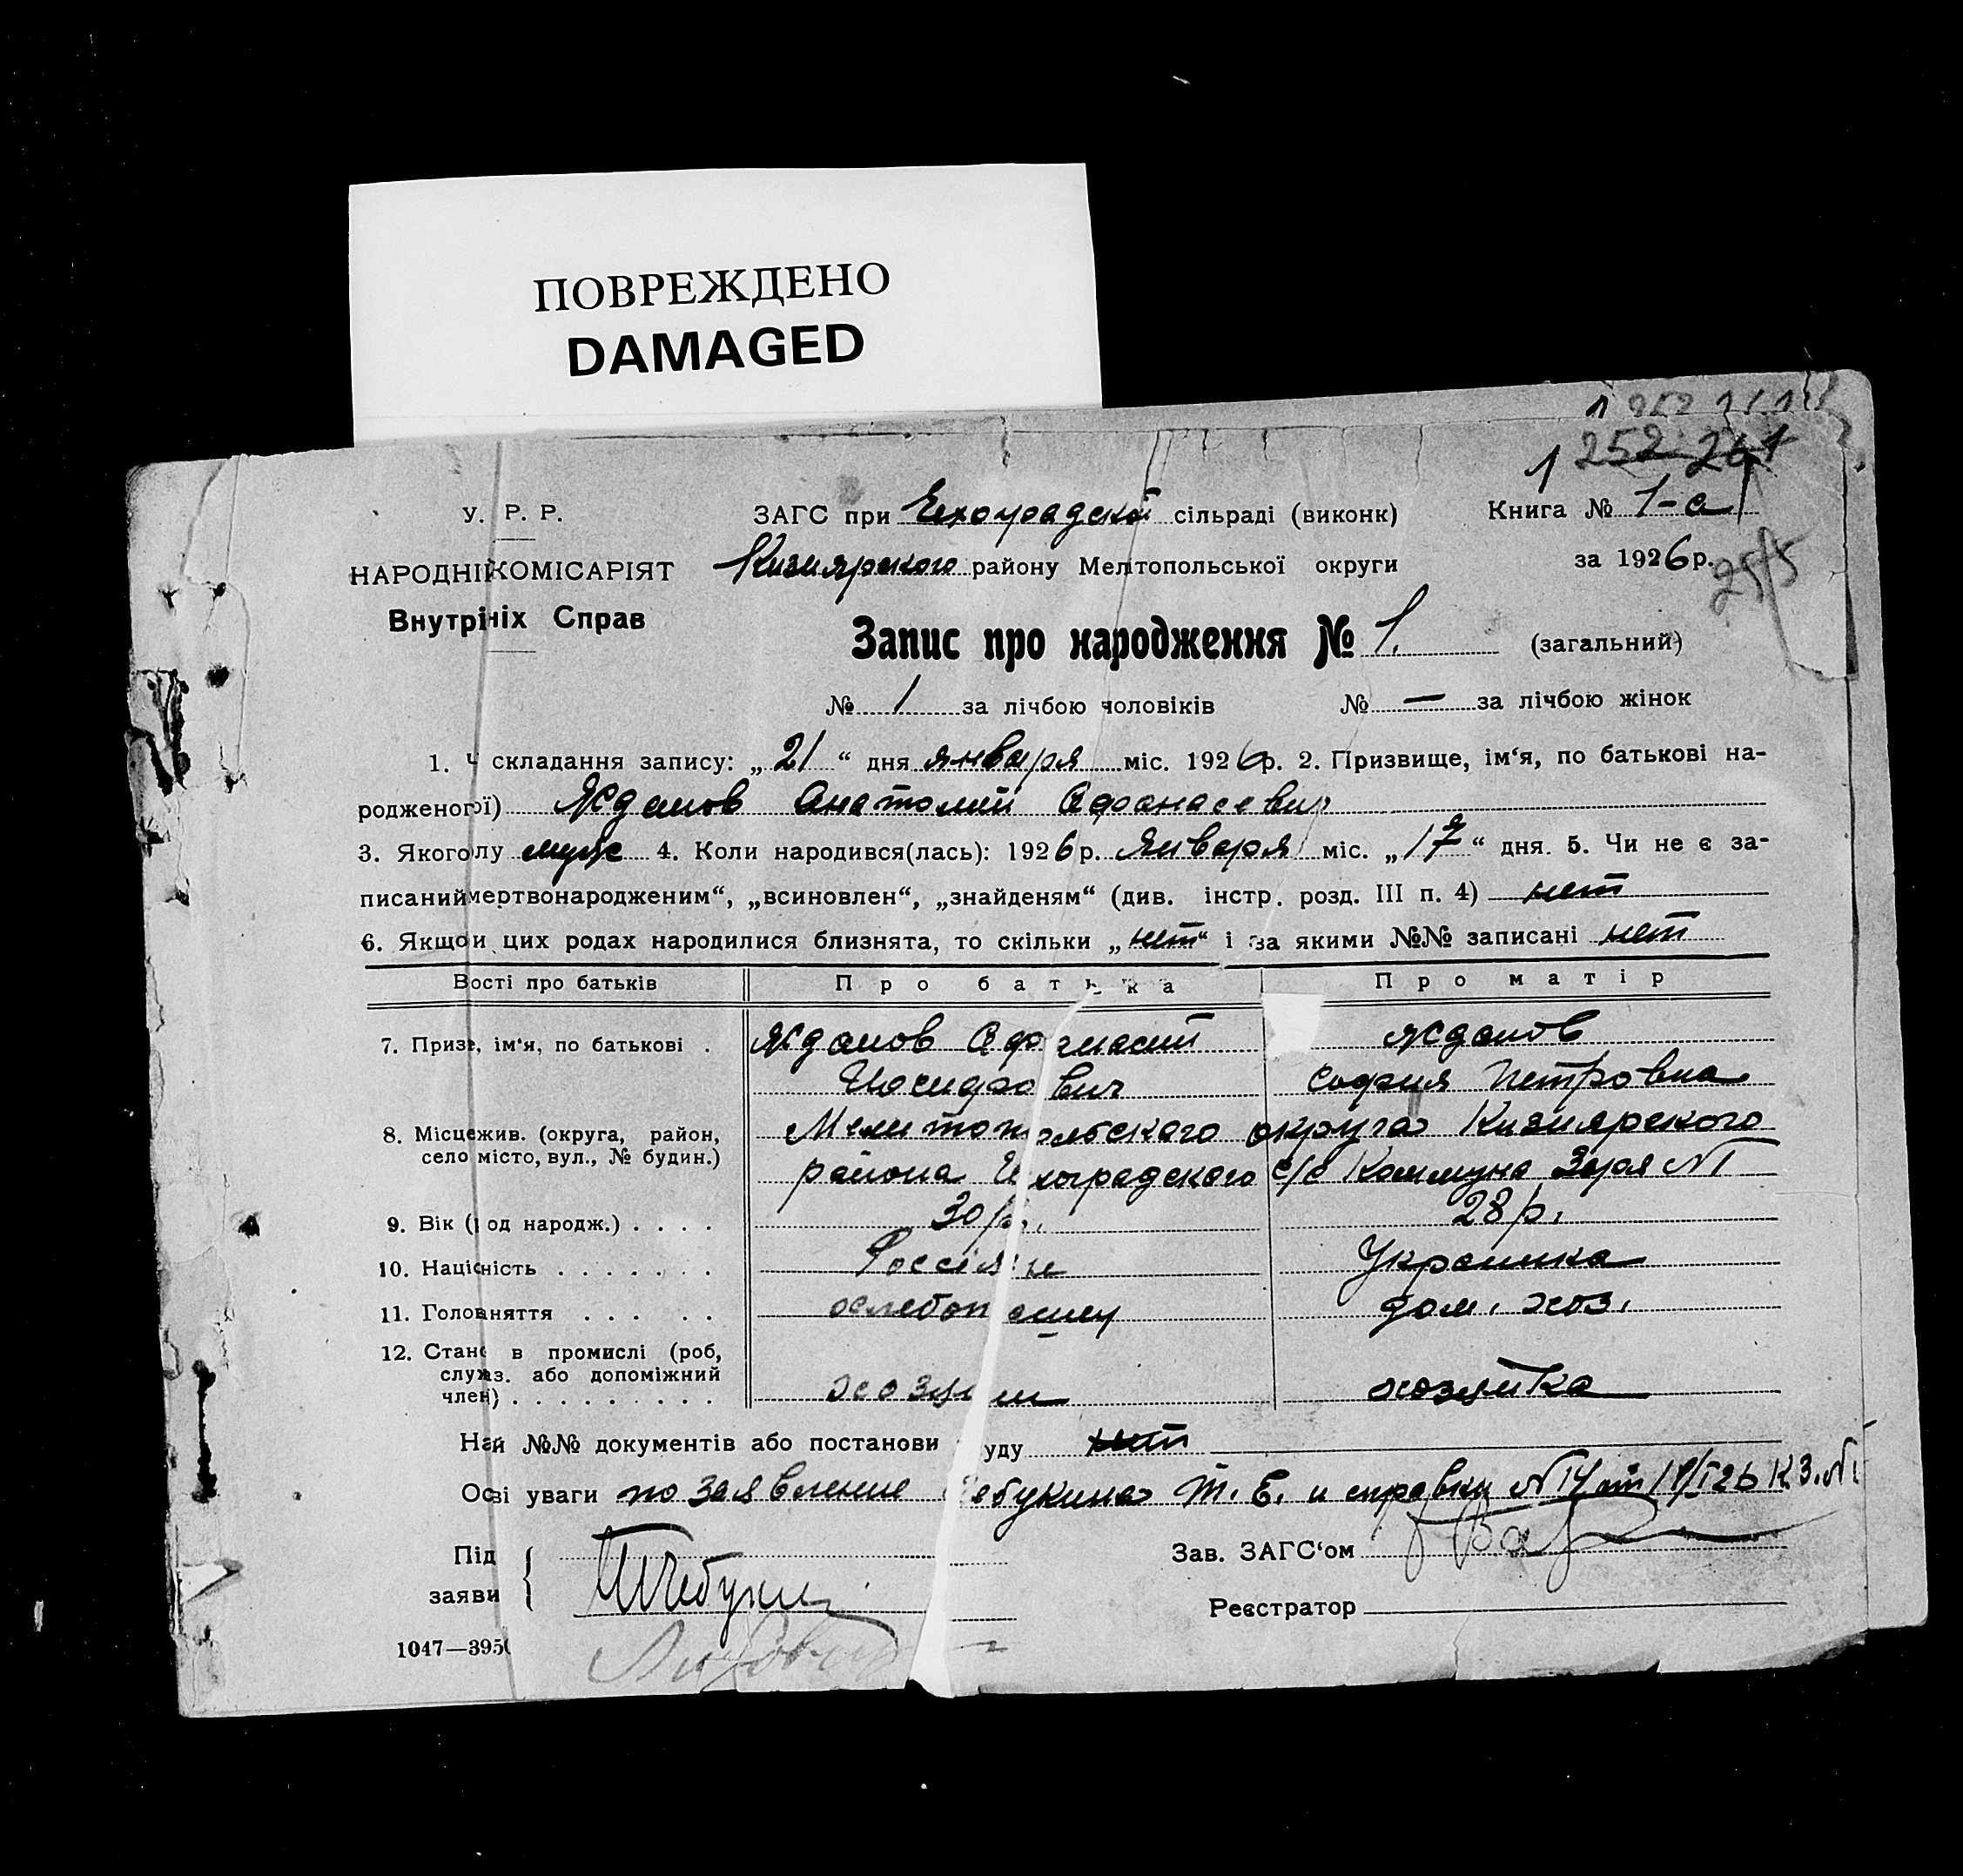 ПОВРЕЖДЕНО
DAMAGED
1 252 261
У. Р. Р.
ЗАГС при Чехоградской сільраді (виконк)
Книга № 1-а
НАРОДНІ КОМІСАРІЯТ
Кизиярского району Мелтопольської округи
за 1926 р.
Внутрініх Справ
Запис про народження № 1. (загальний)
№ 1 за лічбою чоловіків № — за лічбою жінок
1. Ч складання запису: „21“ дня января міс. 1926 р. 2. Призвище, ім‘я, по батькові на-
родженого(ї) Жданов Анатолий Афанасевич
3. Якого лу муж 4. Коли народився(лась): 1926 р. Января міс. „17“ дня. 5. Чи не є за-
писаний мертвонародженим“, „всиновлен“, „знайденям“ (див. інстр. розд. III п. 4) нет
6. Якщо и цих родах народилися близнята, то скільки „нет“ і за якими №№ записані нет
Вості про батьків Про батька Про матір
7. Призв, ім‘я, по батькові . Жданов Афанасий Жданов
Иосифович София Петровна
8. Місцежив. (округа, район, село місто, вул., № будин.) Мелитопольского округа Кизиярского
района Чехоградского с/с Коммуна Заря №1
9. Вік (год народж.) . . . . 30 р. 28 р.
10. Націність . . . . . . . Россіяне Украинка
11. Головняття . . . . . хлебопашец дом. хоз.
12. Стан в промислі (роб, служ. або допоміжний член) . . . . . . . . . хозяин хозяйка
Най №№ документів або постанови суду нет
Осві уваги по заявление Чебукина Т. Е. и справки №14 от 19/I 26 К З. №1
Під
заяви { Т Чебукин
Зав. ЗАГС‘ом
Реєстратор
1047—3950